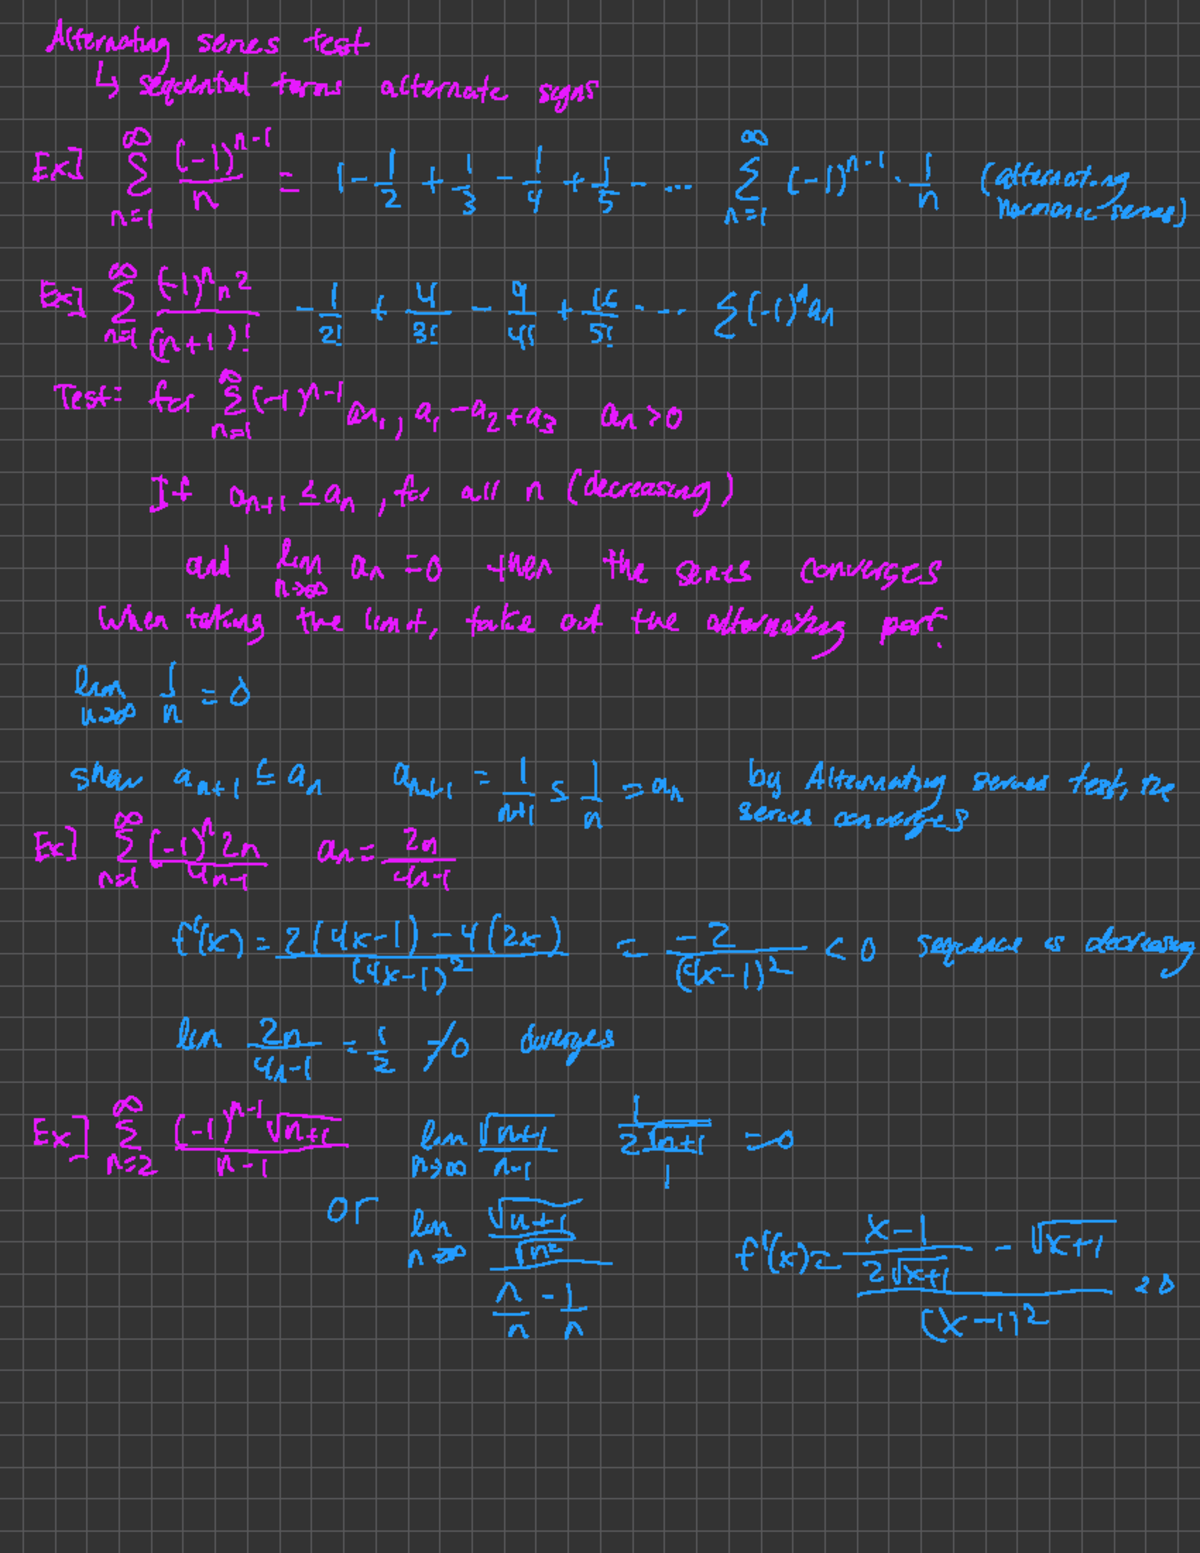 Alternating series test
↳ sequential terms alternate signs
Ex] ∞ Σ n=1 (-1)^(n-1) / n = 1 - 1/2 + 1/3 - 1/4 + 1/5 - ... ∞ Σ n=1 (-1)^(n-1) · 1/n (alternating harmonic series)
Ex] ∞ Σ n=1 (-1)^n n^2 / (n+1)! - 1/2! + 4/3! - 9/4! + 16/5! - ... Σ(-1)^n an
Test: for ∞ Σ n=1 (-1)^(n-1) an, a1 - a2 + a3 an > 0
If an+1 ≤ an, for all n (decreasing)
and lim n→∞ an = 0 then the series converges
When taking the limit, take out the alternating part.
lim n→∞ 1/n = 0
show an+1 ≤ an an+1 = 1/(n+1) ≤ 1/n = an by Alternating series test, the series converges
Ex] ∞ Σ n=1 (-1)^n 2n / 4n-1 an = 2n / 4n-1
f'(x) = 2(4x-1) - 4(2x) / (4x-1)^2 = -2 / (4x-1)^2 < 0 sequence is decreasing
lim 2n / 4n-1 = 1/2 ≠ 0 diverges
Ex] ∞ Σ n=2 (-1)^(n-1) √(n+1) / n-1 lim n→∞ √(n+1) / n-1 1 / 2√(n+1) / 1 = 0
or lim n→∞ √(n+1) / √(n^2) / n/n - 1/n f'(x) = x-1 / 2√(x+1) - √(x+1) / (x-1)^2 < 0